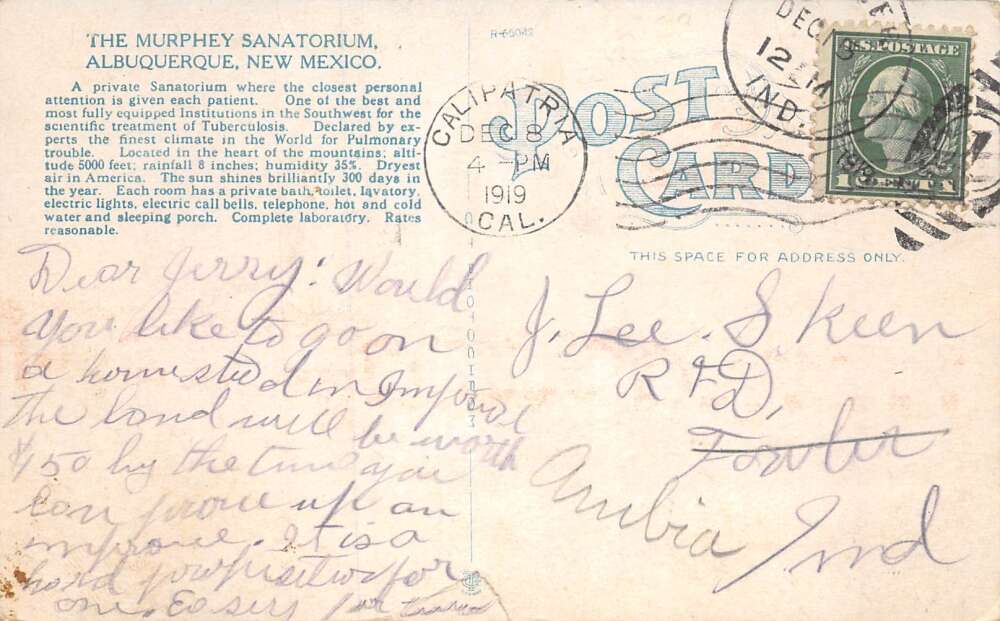 THE MURPHEY SANATORIUM,
ALBUQUERQUE, NEW MEXICO.
A private Sanatorium where the closest personal
attention is given each patient. One of the best and
most fully equipped Institutions in the Southwest for the
scientific treatment of Tuberculosis. Declared by ex-
perts the finest climate in the World for Pulmonary
trouble. Located in the heart of the mountains; alti-
tude 5000 feet; rainfall 8 inches; humidity 35%. Dryest
air in America. The sun shines brilliantly 300 days in
the year. Each room has a private bath, toilet, lavatory,
electric lights, electric call bells, telephone, hot and cold
water and sleeping porch. Complete laboratory. Rates
reasonable.
Dear Jerry: Would
you like to go on
a homestead in Imperial
the land will be worth
$450 by the time you
can prove up an
improve. It is a
hard proposition for
one. Easier for
R-65042
POST CARD
CALIPATRIA
DEC 8
4 PM
1919
CAL.
DEC
12 M
IND.
U.S. POSTAGE
THIS SPACE FOR ADDRESS ONLY.
J. Lee Skeen
R F D,
Fowler
Ambia
Ind